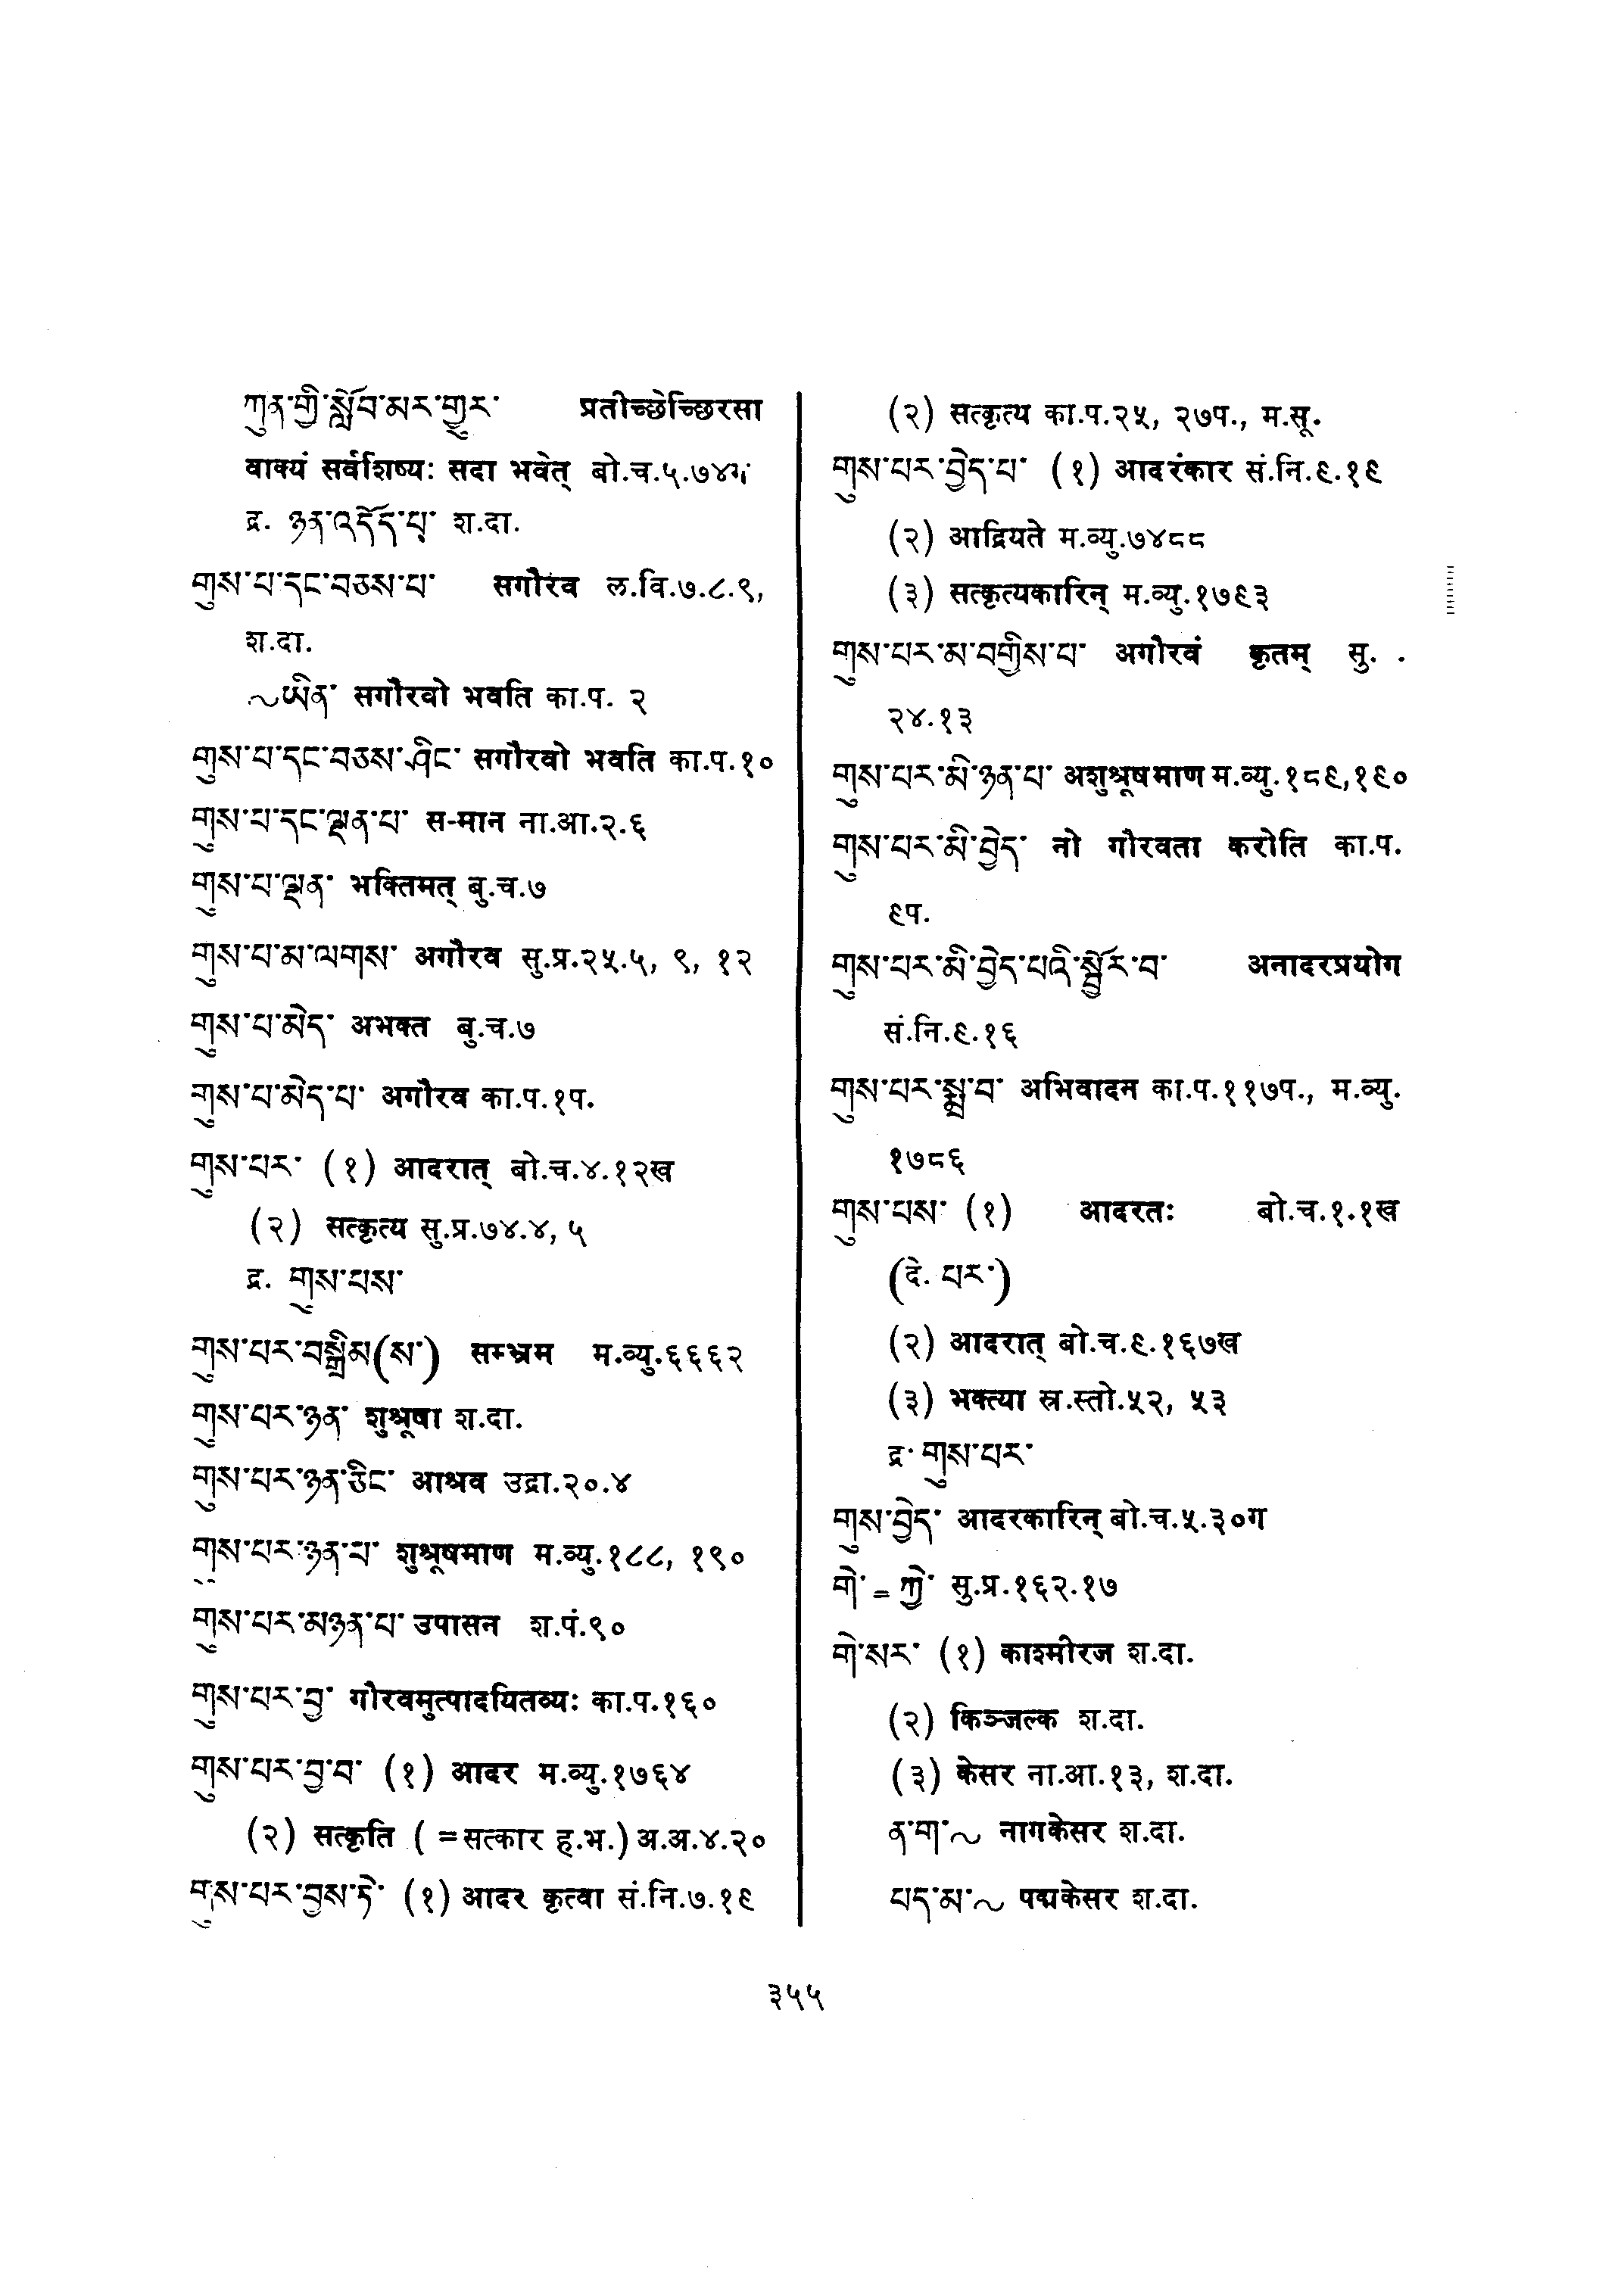 ཀུན་གྱི་སློབ་མར་གྱུར་ प्रतीच्छेच्छिरसा
वाक्यं सर्वशिष्यः सदा भवेत् बो.च.५.७४
द्र. ཉན་འདོད་པ་ श.दा.
གུས་པ་དང་བཅས་པ་ सगौरव ल.वि.७.८.९,
श.दा.
~ཡིན་ सगौरवो भवति का.प. २
གུས་པ་དང་བཅས་ཤིང་ सगौरवो भवति का.प.१०
གུས་པ་དང་ལྡན་པ་ स-मान ना.आ.२.६
གུས་པ་ལྡན་ भक्तिमत् बु.च.७
གུས་པ་མ་ལགས་ अगौरव सु.प्र.२५.५, ९, १२
གུས་པ་མེད་ अभक्त बु.च.७
གུས་པ་མེད་པ་ अगौरव का.प.१प.
གུས་པར་ (१) आदरात् बो.च.४.१२ख
(२) सत्कृत्य सु.प्र.७४.४, ५
द्र. གུས་པས་
གུས་པར་བསྒྲིམ(ས་) सम्भ्रम म.व्यु.६६६२
གུས་པར་ཉན་ शुश्रूषा श.दा.
གུས་པར་ཉན་ཅིང་ आश्रव उद्रा.२०.४
གུས་པར་ཉན་པ་ शुश्रूषमाण म.व्यु.१८८, १९०
གུས་པར་མཉན་པ་ उपासन श.पं.९०
གུས་པར་བྱ་ गौरवमुत्पादयितव्यः का.प.१६०
གུས་པར་བྱ་བ་ (१) आदर म.व्यु.१७६४
(२) सत्कृति ( =सत्कार ह.भ.) अ.अ.४.२०
གུས་པར་བྱས་ཏེ་ (१) आदर कृत्वा सं.नि.७.१९
(२) सत्कृत्य का.प.२५, २७प., म.सू.
གུས་པར་བྱེད་པ་ (१) आदरंकार सं.नि.९.१९
(२) आद्रियते म.व्यु.७४८८
(३) सत्कृत्यकारिन् म.व्यु.१७९३
གུས་པར་མ་བགྱིས་པ་ अगौरवं कृतम् सु. .
२४.१३
གུས་པར་མི་ཉན་པ་ अशुश्रूषमाण म.व्यु.१८९,१९०
གུས་པར་མི་བྱེད་ नो गौरवता करोति का.प.
९प.
གུས་པར་མི་བྱེད་པའི་སྦྱོར་བ་ अनादरप्रयोग
सं.नि.९.१६
གུས་པར་སྨྲ་བ་ अभिवादन का.प.११७प., म.व्यु.
१७८६
གུས་པས་ (१) आदरतः बो.च.१.१ख
(दे. པར་)
(२) आदरात् बो.च.९.१६७ख
(३) भक्त्या स्र.स्तो.५२, ५३
द्र. གུས་པར་
གུས་བྱེད་ आदरकारिन् बो.च.५.३०ग
གེ་ = ཀྱེ་ सु.प्र.१६२.१७
གེ་སར་ (१) काश्मीरज श.दा.
(२) किञ्जल्क श.दा.
(३) केसर ना.आ.१३, श.दा.
ན་ག་~ नागकेसर श.दा.
པད་མ་~ पद्मकेसर श.दा.
३५५